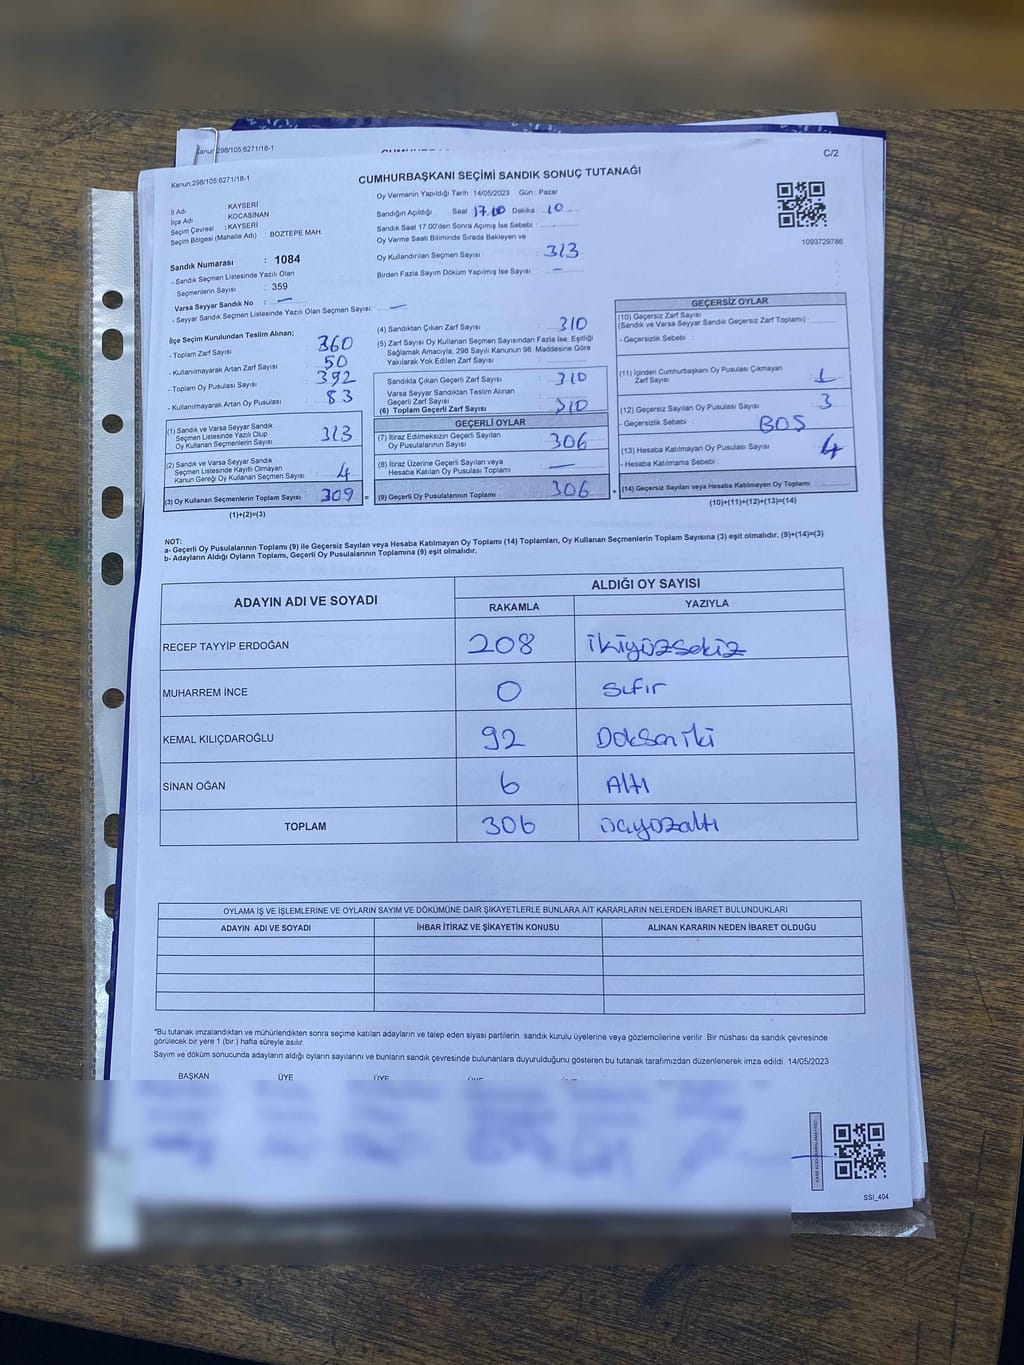 Kanun:298/105.6271/18-1
Kanun:298/105.6271/18-1
C/2
CUMHURBAŞKANI SEÇİMİ SANDIK SONUÇ TUTANAĞI
Oy Vermenin Yapıldığı Tarih : 14/05/2023 Gün : Pazar
İl Adı : KAYSERİ
İlçe Adı : KOCASİNAN
Seçim Çevresi : KAYSERİ
Seçim Bölgesi (Mahalle Adı) BOZTEPE MAH.
Sandığın Açıldığı Saat 17.10 Dakika 10
Sandık Saat 17.00'den Sonra Açımış İse Sebebi :
Oy Verme Saati Bitiminde Sırada Bekleyen ve
Oy Kullandırılan Seçmen Sayısı : 313
Birden Fazla Sayım Döküm Yapılmış İse Sayısı : —
1093729786
Sandık Numarası : 1084
- Sandık Seçmen Listesinde Yazılı Olan
Seçmenlerin Sayısı : 359
Varsa Seyyar Sandık No : —
- Seyyar Sandık Seçmen Listesinde Yazılı Olan Seçmen Sayısı : —
İlçe Seçim Kurulundan Teslim Alınan;
- Toplam Zarf Sayısı : 360
- Kullanılmayarak Artan Zarf Sayısı : 50
- Toplam Oy Pusulası Sayısı : 392
- Kullanılmayarak Artan Oy Pusulası : 83
(1) Sandık ve Varsa Seyyar Sandık
Seçmen Listesinde Yazılı Olup
Oy Kullanan Seçmenlerin Sayısı : 313
(2) Sandık ve Varsa Seyyar Sandık
Seçmen Listesinde Kayıtlı Olmayan
Kanun Gereği Oy Kullanan Seçmen Sayısı : 4
(3) Oy Kullanan Seçmenlerin Toplam Sayısı : 309 =
(1)+(2)=(3)
(4) Sandıktan Çıkan Zarf Sayısı : 310
(5) Zarf Sayısı Oy Kullanan Seçmen Sayısından Fazla İse, Eşitliği
Sağlamak Amacıyla, 298 Sayılı Kanunun 98. Maddesine Göre
Yakılarak Yok Edilen Zarf Sayısı :
Sandıkta Çıkan Geçerli Zarf Sayısı : 310
Varsa Seyyar Sandıktan Teslim Alınan
Geçerli Zarf Sayısı :
(6) Toplam Geçerli Zarf Sayısı : 310
GEÇERLİ OYLAR
(7) İtiraz Edilmeksizin Geçerli Sayılan
Oy Pusulalarının Sayısı : 306
(8) İtiraz Üzerine Geçerli Sayılan veya
Hesaba Katılan Oy Pusulası Toplamı : —
(9) Geçerli Oy Pusulalarının Toplamı : 306 +
GEÇERSİZ OYLAR
(10) Geçersiz Zarf Sayısı
(Sandık ve Varsa Seyyar Sandık Geçersiz Zarf Toplamı) :
- Geçersizlik Sebebi :
(11) İçinden Cumhurbaşkanı Oy Pusulası Çıkmayan
Zarf Sayısı : 1
(12) Geçersiz Sayılan Oy Pusulası Sayısı : 3
- Geçersizlik Sebebi : BOŞ
(13) Hesaba Katılmayan Oy Pusulası Sayısı : 4
- Hesaba Katılmama Sebebi :
(14) Geçersiz Sayılan veya Hesaba Katılmayan Oy Toplamı :
(10)+(11)+(12)+(13)=(14)
NOT:
a- Geçerli Oy Pusulalarının Toplamı (9) ile Geçersiz Sayılan veya Hesaba Katılmayan Oy Toplamı (14) Toplamları, Oy Kullanan Seçmenlerin Toplam Sayısına (3) eşit olmalıdır. (9)+(14)=(3)
b- Adayların Aldığı Oyların Toplamı, Geçerli Oy Pusulalarının Toplamına (9) eşit olmalıdır.
ADAYIN ADI VE SOYADI ALDIĞI OY SAYISI
RAKAMLA YAZIYLA
RECEP TAYYİP ERDOĞAN 208 ikiyüzsekiz
MUHARREM İNCE 0 sıfır
KEMAL KILIÇDAROĞLU 92 Doksaniki
SİNAN OĞAN 6 Altı
TOPLAM 306 üçyüzaltı
OYLAMA İŞ VE İŞLEMLERİNE VE OYLARIN SAYIM VE DÖKÜMÜNE DAİR ŞİKAYETLERLE BUNLARA AİT KARARLARIN NELERDEN İBARET BULUNDUKLARI
ADAYIN ADI VE SOYADI İHBAR İTİRAZ VE ŞİKAYETİN KONUSU ALINAN KARARIN NEDEN İBARET OLDUĞU
*Bu tutanak imzalandıktan ve mühürlendikten sonra seçime katılan adayların ve talep eden siyasi partilerin sandık kurulu üyelerine veya gözlemcilerine verilir. Bir nüshası da sandık çevresinde
görülecek bir yere 1 (bir ) hafta süreyle asılır.
Sayım ve döküm sonucunda adayların aldığı oyların sayılarını ve bunların sandık çevresinde bulunanlara duyurulduğunu gösteren bu tutanak tarafımızdan düzenlenerek imza edildi. 14/05/2023
BAŞKAN ÜYE ÜYE ÜYE
SSİ_404